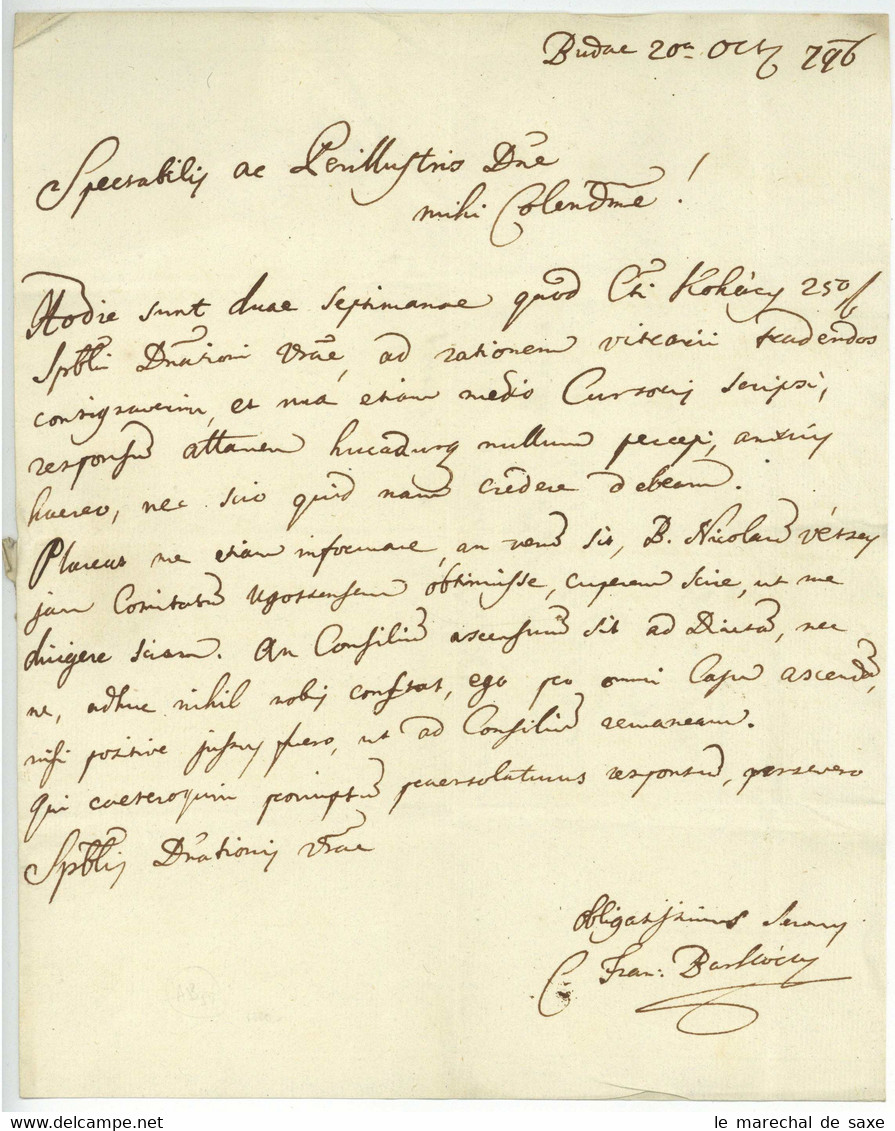 Budae 20a Octb 796
Spectabilis ac Perillustris Dne
mihi Colendme!
Hodie sunt duae septimanae quod Cti Koháry 250 f
Spbtli Dnationi Vrae, ad rationem tradendos
consignaverim, et una etiam medio Cursoris scripsi,
responsum attamen hucadusq nullum percepi, anxius
haereo, nec scio quid nam credere debeam.
Placeat me etiam informare, an verum sit, B. Nicolaum Vétsey
jam Comitatum Ugotsensem obtinuisse, cuperem scire, ut me
dirigere sciam. An Consilium ascensurum sit ad Diaetam, nec
ne, adhuc nihil nobis constat, ego pro omni Casu ascendam,
nisi positive jussus fuero, ut ad Consilium remaneam.
Qui caeteroquin promptum praestolaturus responsum, persevero
Spbtlis Dnationis Vrae
obligatissimus Servus
C Fran: Barkóczy
le marechal de saxe